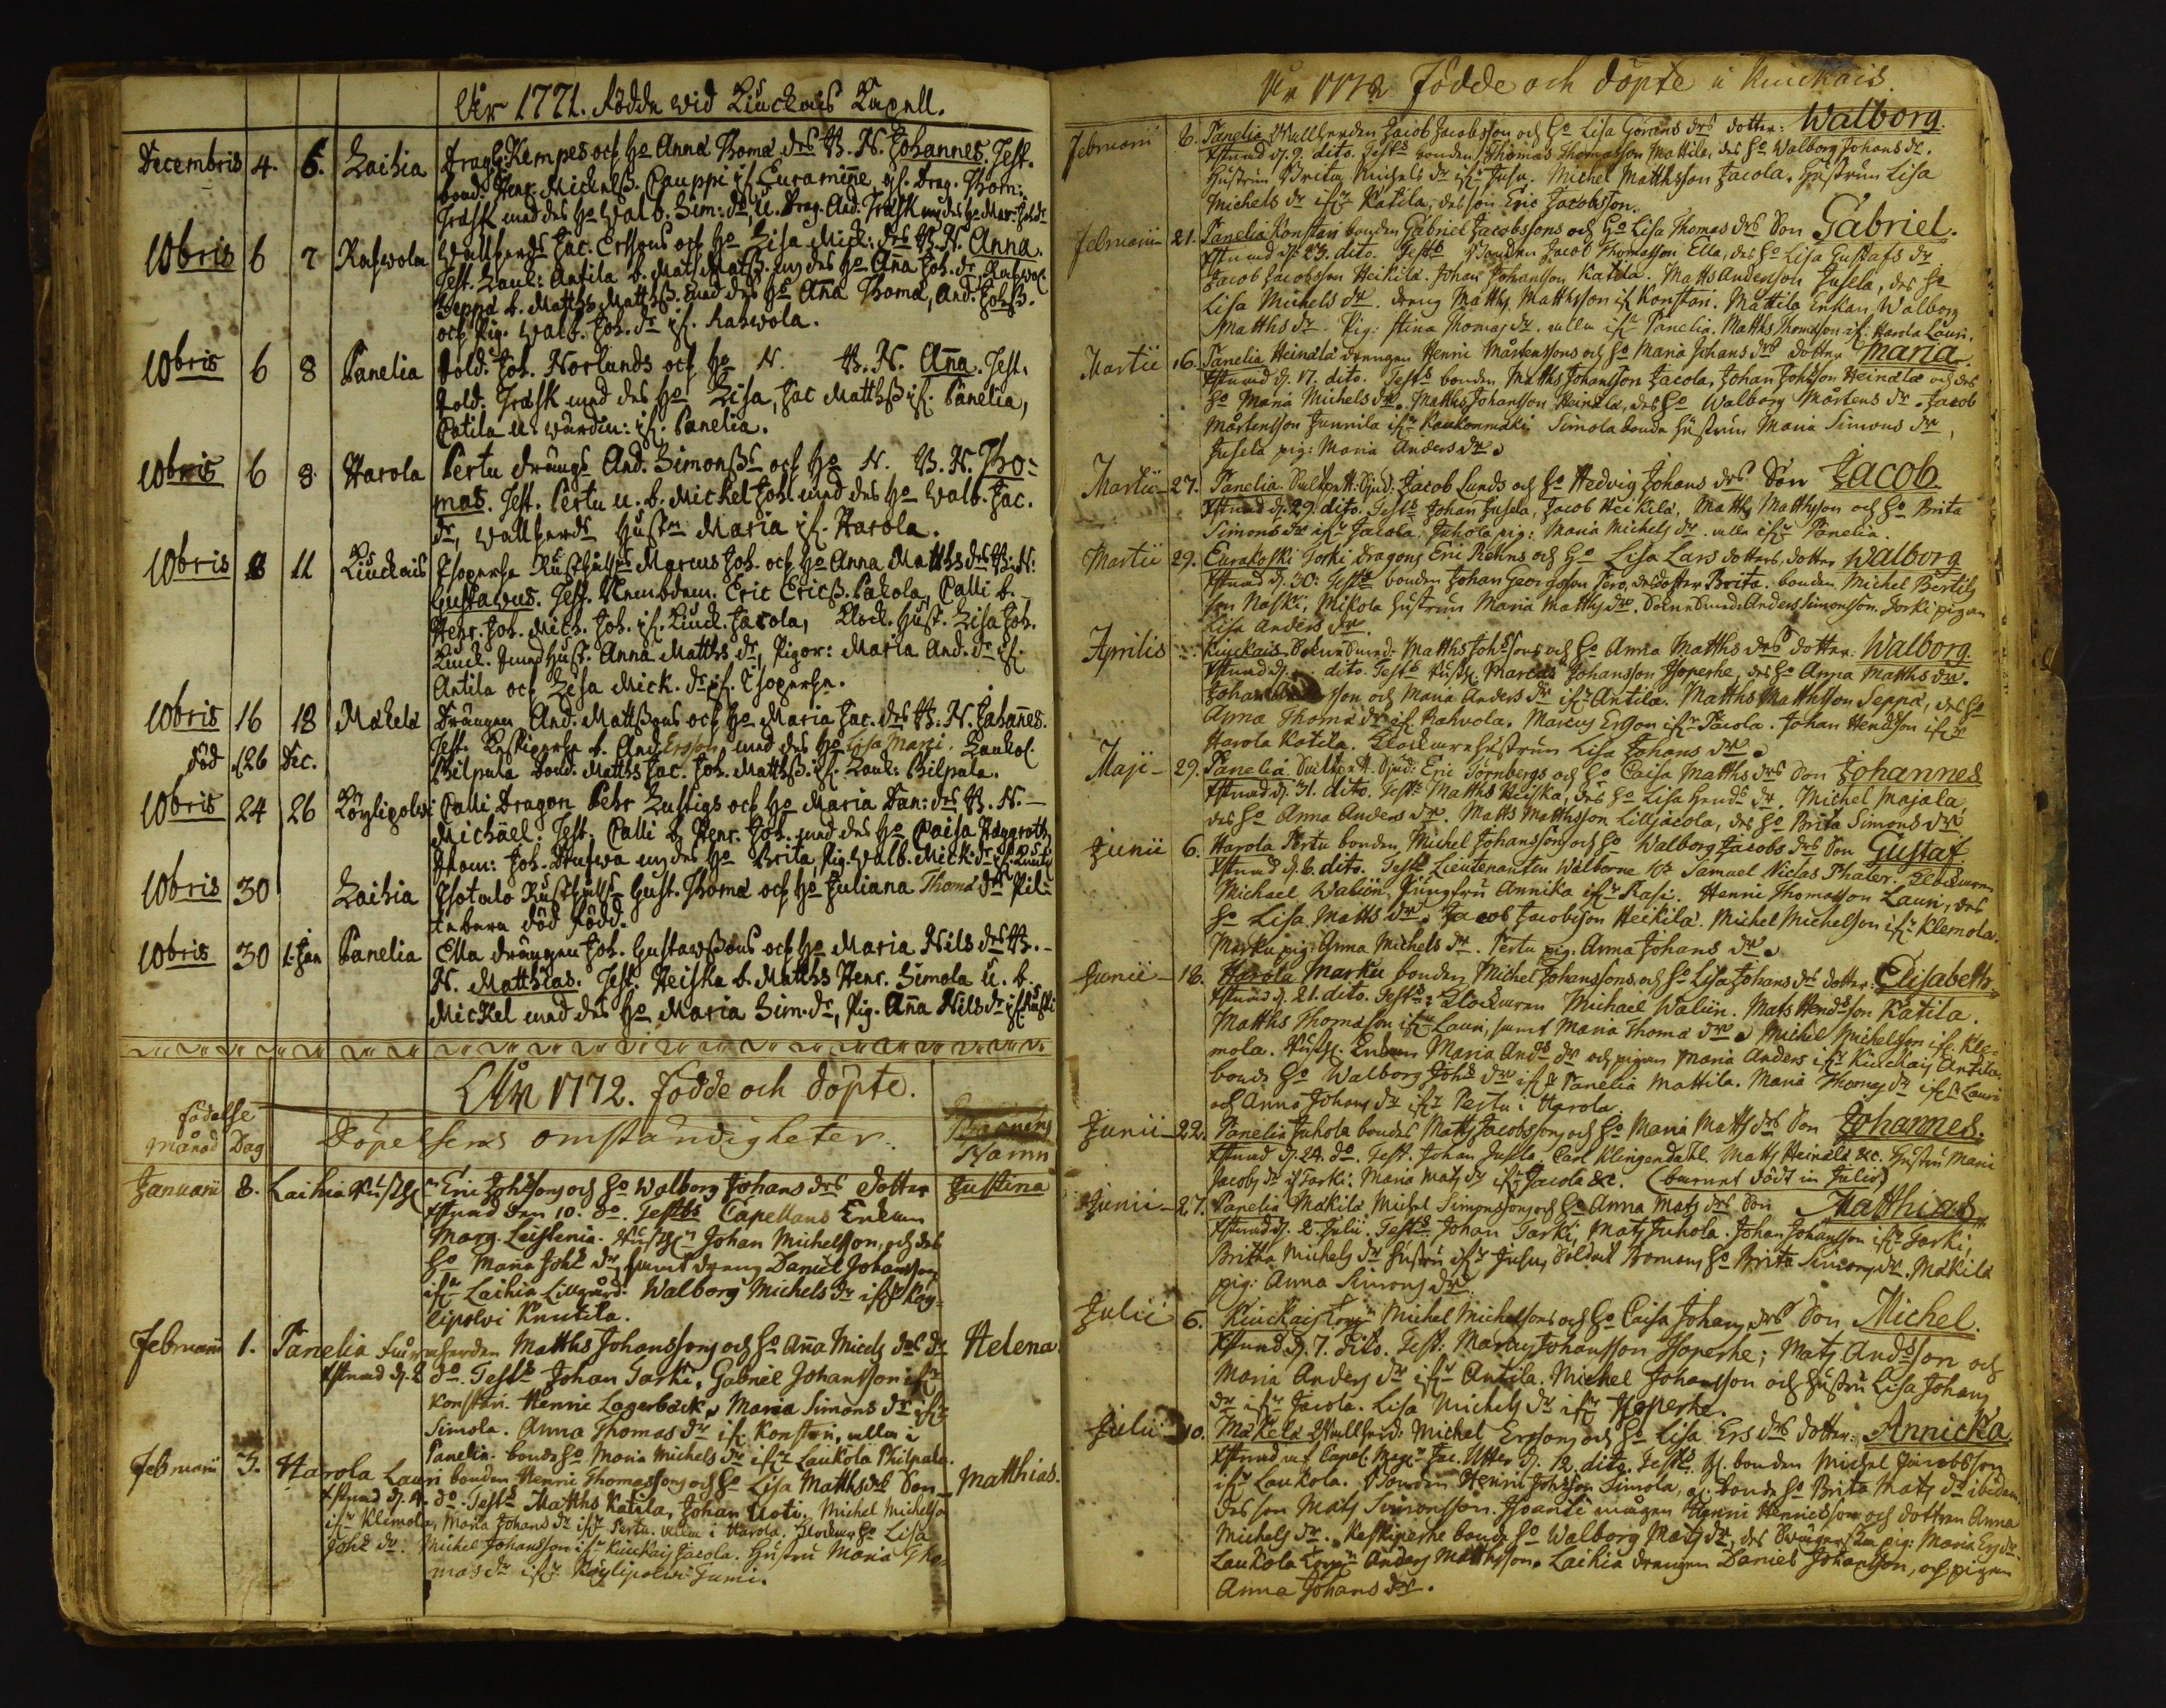 Åhr 1771. Födde wid Kiuckais Capell.
Decembris 4. 6. Laihia Drag: Kempes och Ho Anna Thomæ drs B. N. Johannes. Test.
bond. Henr. Mickelß. Cauppi if. Euraminne, Drag. Thom:
Träsk med des Ho Walb. Sim: dr, u. Drag. And. Träsk
10bris 6 7 Rahwola Wallherds Jac. Erssons och Ho Lisa Mick: drs B. N. Anna.
Test. Lauk: Antila b. Mats Matß. m des Ho Aña Joh. dr Rahwol.
Seppä b. Matths Mathß. med des Ho Aña Thomæ, And. Johß.
och Pig. Walb. Joh. dr if. Rahwola.
10bris 6 8 Panelia Sold. Joh. Norlunds och Ho N. B. N. Aña. Test.
Sold. Träsk med des Ho Lisa, Jac Matthß if. Panelia,
Catila u. wärdin: if. Panelia.
10bris 6 8 Harola Pertu drängs And. Simonß och Ho N. B. N. Tho=
mas. Test. Pertu u. b. Mickel Joh. med des Ho Walb. Jac.
dr, Wallherds Hustr Maria if. Harola.
10bris 8 11 Kiuckais Isoperhe Rusthålls Marcus Joh. och Ho Anna Matths drs B. N:
Gustavus. Test. Nembdem. Eric Ericß. Pakola, Calli b.
Henr. Joh. Mich. Joh. if. Kiuck. Jacola, Klock. Hust. Lisa Joh.
Kiuck. Hust. Anna Matths dr, Pigor: Maria And. dr if.
Antila och Lisa Mick. dr if. Isoperhe.
10bris 16 18 Mäkelä Drängen And. Mattßons och Ho Maria Jac. drs B. N. Johañes.
Test. Keskiperhe b. And Ersson, med des Ho Lisa Laukol.
död d 26 Dec. Philpula bond. Matths Jac. Joh. Matthß. if. Lauk: Philpula.
10bris 24 26 Köylipolwi Calli Dragon Pehr Lustigs och Ho Maria Dan: drs B. N. –
Michäel. Test. Calli b. Henr. Joh. med des Ho Caisa Häggroth,
Joh. m des Ho Brita, Pig. Walb. Mick: dr if.
10bris 30 Laihia Isotalo Rusthålls Gust. Thomæ och Ho Juliana Thomæ dr Pil=
tebarn död född.
10bris 30 1. Jan Panelia Ella drängen Joh. Gustawßons och Ho Maria Nils drs B. –
N. Matthias. Test. Heiska b. Matths Henr. Simola u. b.
Mickel med des Ho Maria Sim. dr, Pig. Aña Nils dr if.
Åhr 1772. Födde och döpte.
födelse
Månad Dag Döpelsens omständigheter. Barnens
Namn
Januarii 8. Laihia Rusth Eric Johssons och Ho Walborg Johans drs dotter Justina
Xstnad den 10. do. Testes Capellans Enkan
Marg. Leistenia. Rusth Johan Michelsson, och des
Ho Maria Johs dr, samt dreng Daniel Johansson,
ifr Laihia Lillgård. Walborg Michels dr ifr Köy=
lipolvi Knutila.
Februarii 1. Panelia Matths Johanssons och Ho Aña Micels drs dr Helena.
Xstnad d. 2 do. Tests Johan Tarki, Gabriel Johansson ifr
Konstari. Henric Lagerbäck, Maria Simons dr ifr
Simola. Anna Thomas dr if. Konstari, alla i
Panelia. bonde Ho Maria Michels dr ifr Laukola Philpula.
Februarii 3. Harola Lauri bonden Henric Thomassons och Ho Lisa Matths drs Son Matthias.
Xstnad d. 4. do. Tests Matths Katila, Johan Uoti. Michel Michelsson
ifr Klemola, Maria Johans dr ifr Pertu. alla i Harola, Ho Lisa
Johs dr. Michel Johansson ifr Kiuckais Jacola. Hustru Maria Tho=
mas dr ifr Köylipolvi Jumi.
Åhr 1772 Födde och döpte i Kiuckais.
Februarii 6. Panelia Wallherden Jacob Jacobsson och Ho Lisa Görans drs dotter: Walborg.
Xstnad d. 9. dito. Tests bonden Thomas Thomasson Mattila, des Ho Walborg Johans dr.
Hustrun Brita Michels dr ifr Jusu. Michel Matthsson Jacola. Hustrun Lisa
Michels dr ifr Katila, des son Eric Jacobsson.
Februarii 21. Panelia Konstari bonden Gabriel Jacobssons och Ho Lisa Thomas drs Son Gabriel.
Xstnad d. 23. dito. Tests Bonden Jacob Thomasson Ella, des Ho Lisa Gustafs dr
Jacob Jacobsson Heikilä. Johan Johansson Katila. Matts Andersson Jusela, des Ho
Lisa Michels dr. dreng Matths Matthsson if Konstari. Mattila Enkan, Walborg
Matths dr. Pig: Stina Thomas dr. alla ifr Panelia. Matths Thomasson if. Harola Lauri.
Martii 16. Panelia Heinälä drengen Henric Mårtenssons och Ho Maria Johans drs dotter Maria.
Xstnad d. 17. dito. Tests bonden Matths Johansson Jacola, Johan Johsson Heinälä och des
Ho Maria Michels dr. Matths Johansson Heinälä, des Ho Walborg Mårtens dr. Jacob
Mårtensson Junnila ifr Kaukonmäki Simola bonde hustrun Maria Simons dr,
Jusela pig: Maria Anders dr.
Martii 27. Panelia. Jacob Lunds och Ho Hedvig Johans drs Son Jacob
Xstnad d. 29. dito. Tests Johan Jusela, Jacob Heikilä, Matths Matthsson och Ho Brita
Simons dr ifr Jacola. Juhola pig: Maria Michels dr. alla ifr Panelia.
Martii 29. Eurakoski Torki dragons Eric Rehns och Ho Lisa Lars dotters, dotter Walborg
Xstnad d. 30: Tests bonden Johan Georgsson Pero, des dotter Brita. bonden Michel Bertils
son Naski, Mikola hustrun Maria Matths dr. Sockne Smeds Anders Simonsson. Torki pigan
Lisa Anders dr.
Aprilis Kiuckais Sockne Smed. Matths Johssons och Ho Anna Matths drs dotter: Walborg.
Xstnad d. dito. Tests Marcus Johansson Isoperhe, des Ho Anna Matths dr.
Johan sson och Maria Anders dr ifr Antila. Matths Matthsson Seppä, des Ho
Anna Thomæ dr if. Rahvola. Marcus Ersson ifr Pacola. Johan Hendsson ifr
Harola Katila. Klockarehustrun Lisa Johans dr.
Maji 29. Panelia Eric Törnbergs och Ho Caisa Matths drs Son Johannes
Xstnad d. 31. dito. Tests Matths Heiska, des Ho Lisa Hends dr. Michel Majala,
des Ho Anna Anders dr. Matts Matthsson Lilljacola, des Ho Brita Simons dr.
Junii 6. Harola Pertu bonden Michel Johanssons och Ho Walborg Jacobs drs Son Gustaf.
Xstnad d. 6. dito. Tests Lieutenanten Wälborne Hr Samuel Niclas Thaler. Klockaren
Michael Waliin, Jungfru Annika ifr Rasi. Henric Thomasson Lauri, des
Ho Lisa Matts dr. Jacob Jacobsson Heikilä. Michel Michelsson ifr Klemola.
Marku pig: Anna Michels dr. Pertu pig. Anna Johans dr.
Junii 18. Harola Marku bonden Michel Johanssons och Ho Lisa Johans drs dotter: Elisabeth.
Xstnad d. 21. dito. Tests: Klockaren Michael Waliin. Mats Hendsson Katila.
Matths Thomasson ifr Lauri, samt Maria Thomæ dr. Michel Michelsson ifr Kle=
mola. Enkan Maria Ands dr och pigan Maria Anders ifr Kiuckais Antila.
bonde Ho Walborg Johs dr ifr Panelia Mattila. Maria Thomas dr ifr Lauri
och Anna Johans dr ifr Pertu i Harola.
Junii 22. Panelia Juhola bonden Matts Jacobssons och Ho Maria Matts drs Son Johannes.
Xstnad d. 24. do. Test. Johan Jusela, Carl Klingendahl. Matts Heinälä &c. Hustru Maria
Jacobs dr if Tarki. Maria Mats dr ifr Jacola &c. (barnet dödt in Julio)
Junii 27. Panelia Mäkilä, Michel Simonssons och Ho Anna Mats drs Son Matthias
Xstnad d. 2. Julii. Tests Johan Tarki, Mats Juhola. Johan Johansson ifr Tarki,
Britha Michels dr hustru ifr Jusu, Soldat Bromans Ho Brita Simons dr. Mäkilä
pig: Anna Simons dr.
Julii 6. Kiuckais Michel Michelssons och Ho Caisa Johans drs Son Michel.
Xstnad d. 7. dito. Test: Marcus Johansson Isoperhe; Mats Andsson och
Maria Anders dr ifr Antila. Michel Johansson och hustru Lisa Johans
dr ifr Jacola. Lisa Michels dr ifr Isoperhe.
Julii 10. Mäkelä Wallherd: Michel Erssons och Ho Lisa Ers drs dotter: Annicka
Xstnad af Capel. Jac. Utter d. 12. dito. Tests bonden Michel Jacobsson
ifr Laukola. Bonden Henric Johsson Simola, bonde Ho Brita Mats dr ibidem.
des son Mats Simonsson. Isoanti mågen Henric Henricsson och dottren Anna
Michels dr. Keskiperhe bonde Ho Walborg Mats dr, des pig: Maria Ers dr.
Laukola Anders Matthsson. Laihia drengen Daniel Johansson, och pigan
Anna Johans dr.